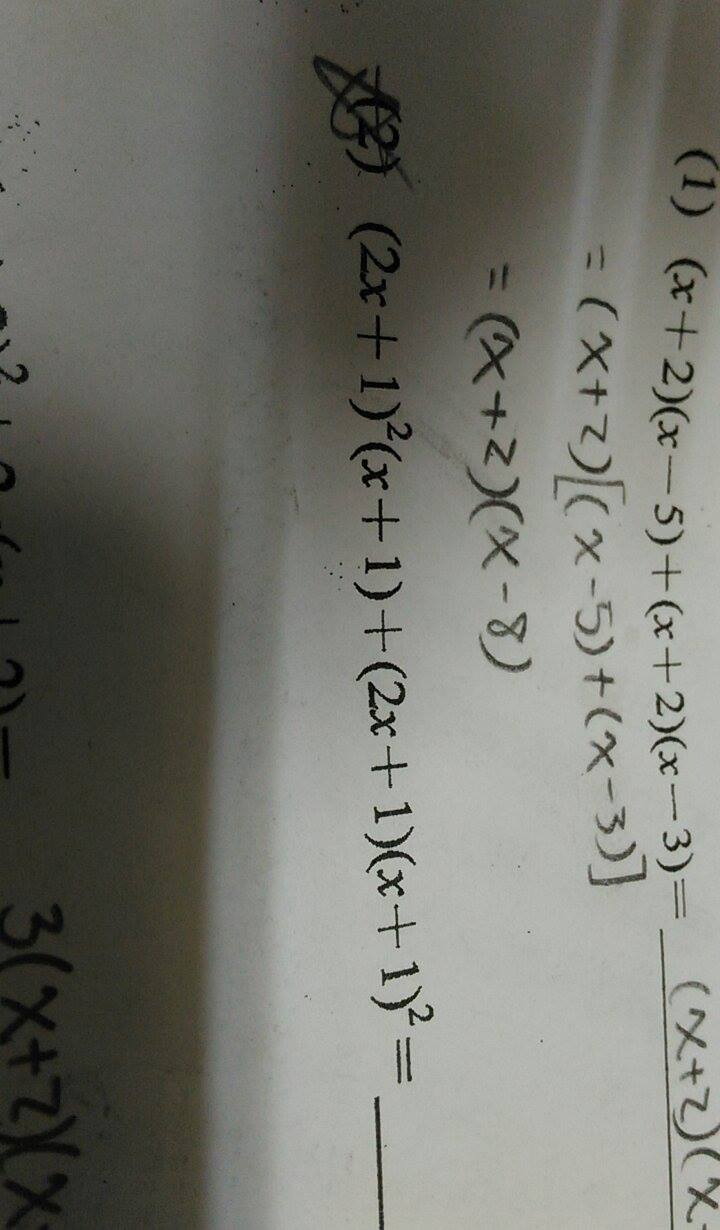 (1) (x+2)(x-5)+(x+2)(x-3)= (x+2)(x-
=(x+2)[(x-5)+(x-3)]
=(x+2)(x-8)
(2) (2x+1)²(x+1)+(2x+1)(x+1)²=
3(x+2)(x